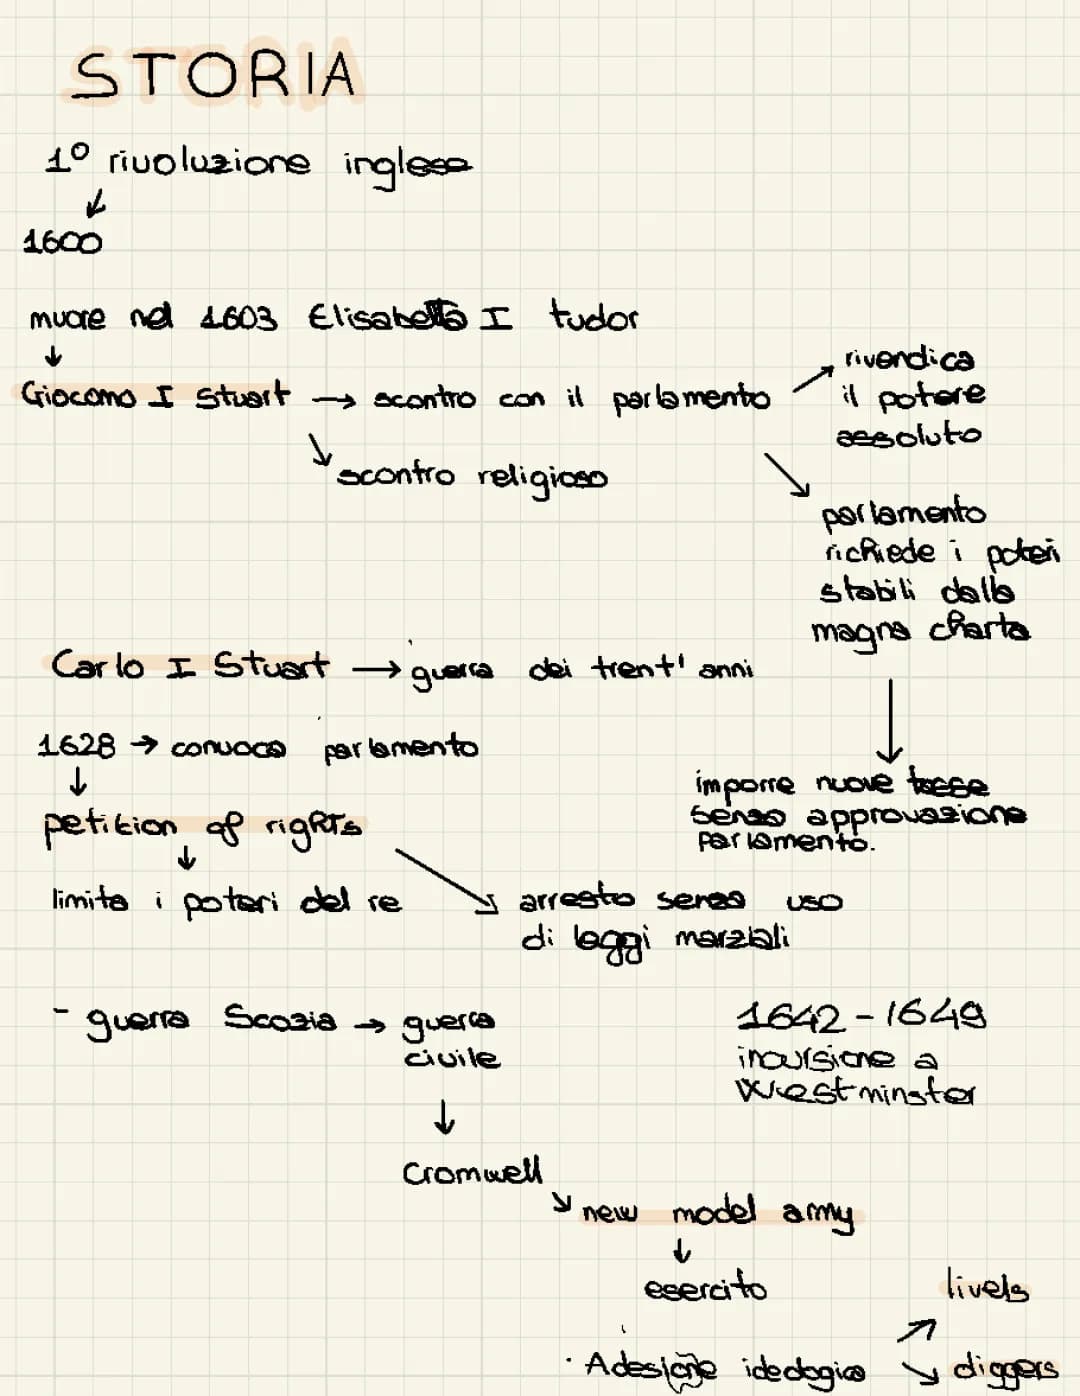 STORIA
1° rivoluzione inglese
↓
1600
muore nel 1603 Elisabetta I tudor
↓
Giacomo I Stuart → scontro con il parlamento
↗ rivendica
il potere
assoluto
↘ scontro religioso
↘ parlamento
richiede i poteri
stabili dalla
magna charta
Carlo I Stuart → guerra dei trent' anni
1628 → convoca parlamento
↓
↓
imporre nuove tasse
senza approvazione
parlamento.
petition of rights
↓
limita i poteri del re
↘ arresto senza uso
di leggi marziali
- guerra Scozia → guerra
civile
1642-1649
incursione a
Westminster
↓
Cromwell
↘ new model army
↓
esercito
· Adesione ideologica
↗ livels
↘ diggers